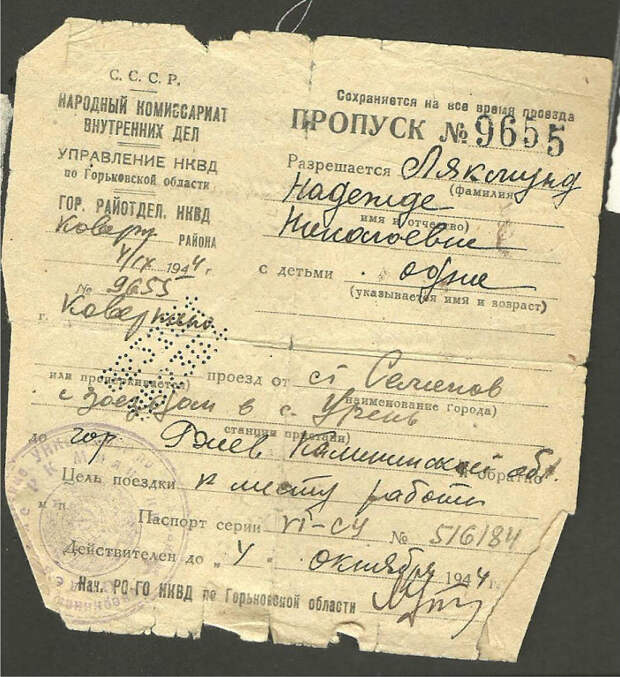 С. С. С. Р.
НАРОДНЫЙ КОМИССАРИАТ
ВНУТРЕННИХ ДЕЛ
УПРАВЛЕНИЕ НКВД
по Горьковской области
ГОР. РАЙОТДЕЛ. НКВД
РАЙОНА
4/IX 1944 г.
№ 9655
г.
Сохраняется на все время проезда
ПРОПУСК № 9655
Разрешается Лякмунд
(фамилия
Надежде
имя и отчество)
Николаевне
с детьми одна
(указывается имя и возраст)
проезд от ст Семенов
наименование города)
с заездом в с. Урень
станции пристани)
до гор. Ржев Калининской обл. и обратно
Цель поездки к месту работы
Паспорт серии VI-СУ № 516184
Действителен до „4 " октября 1944 г.
Нач. РО-ГО НКВД по Горьковской области